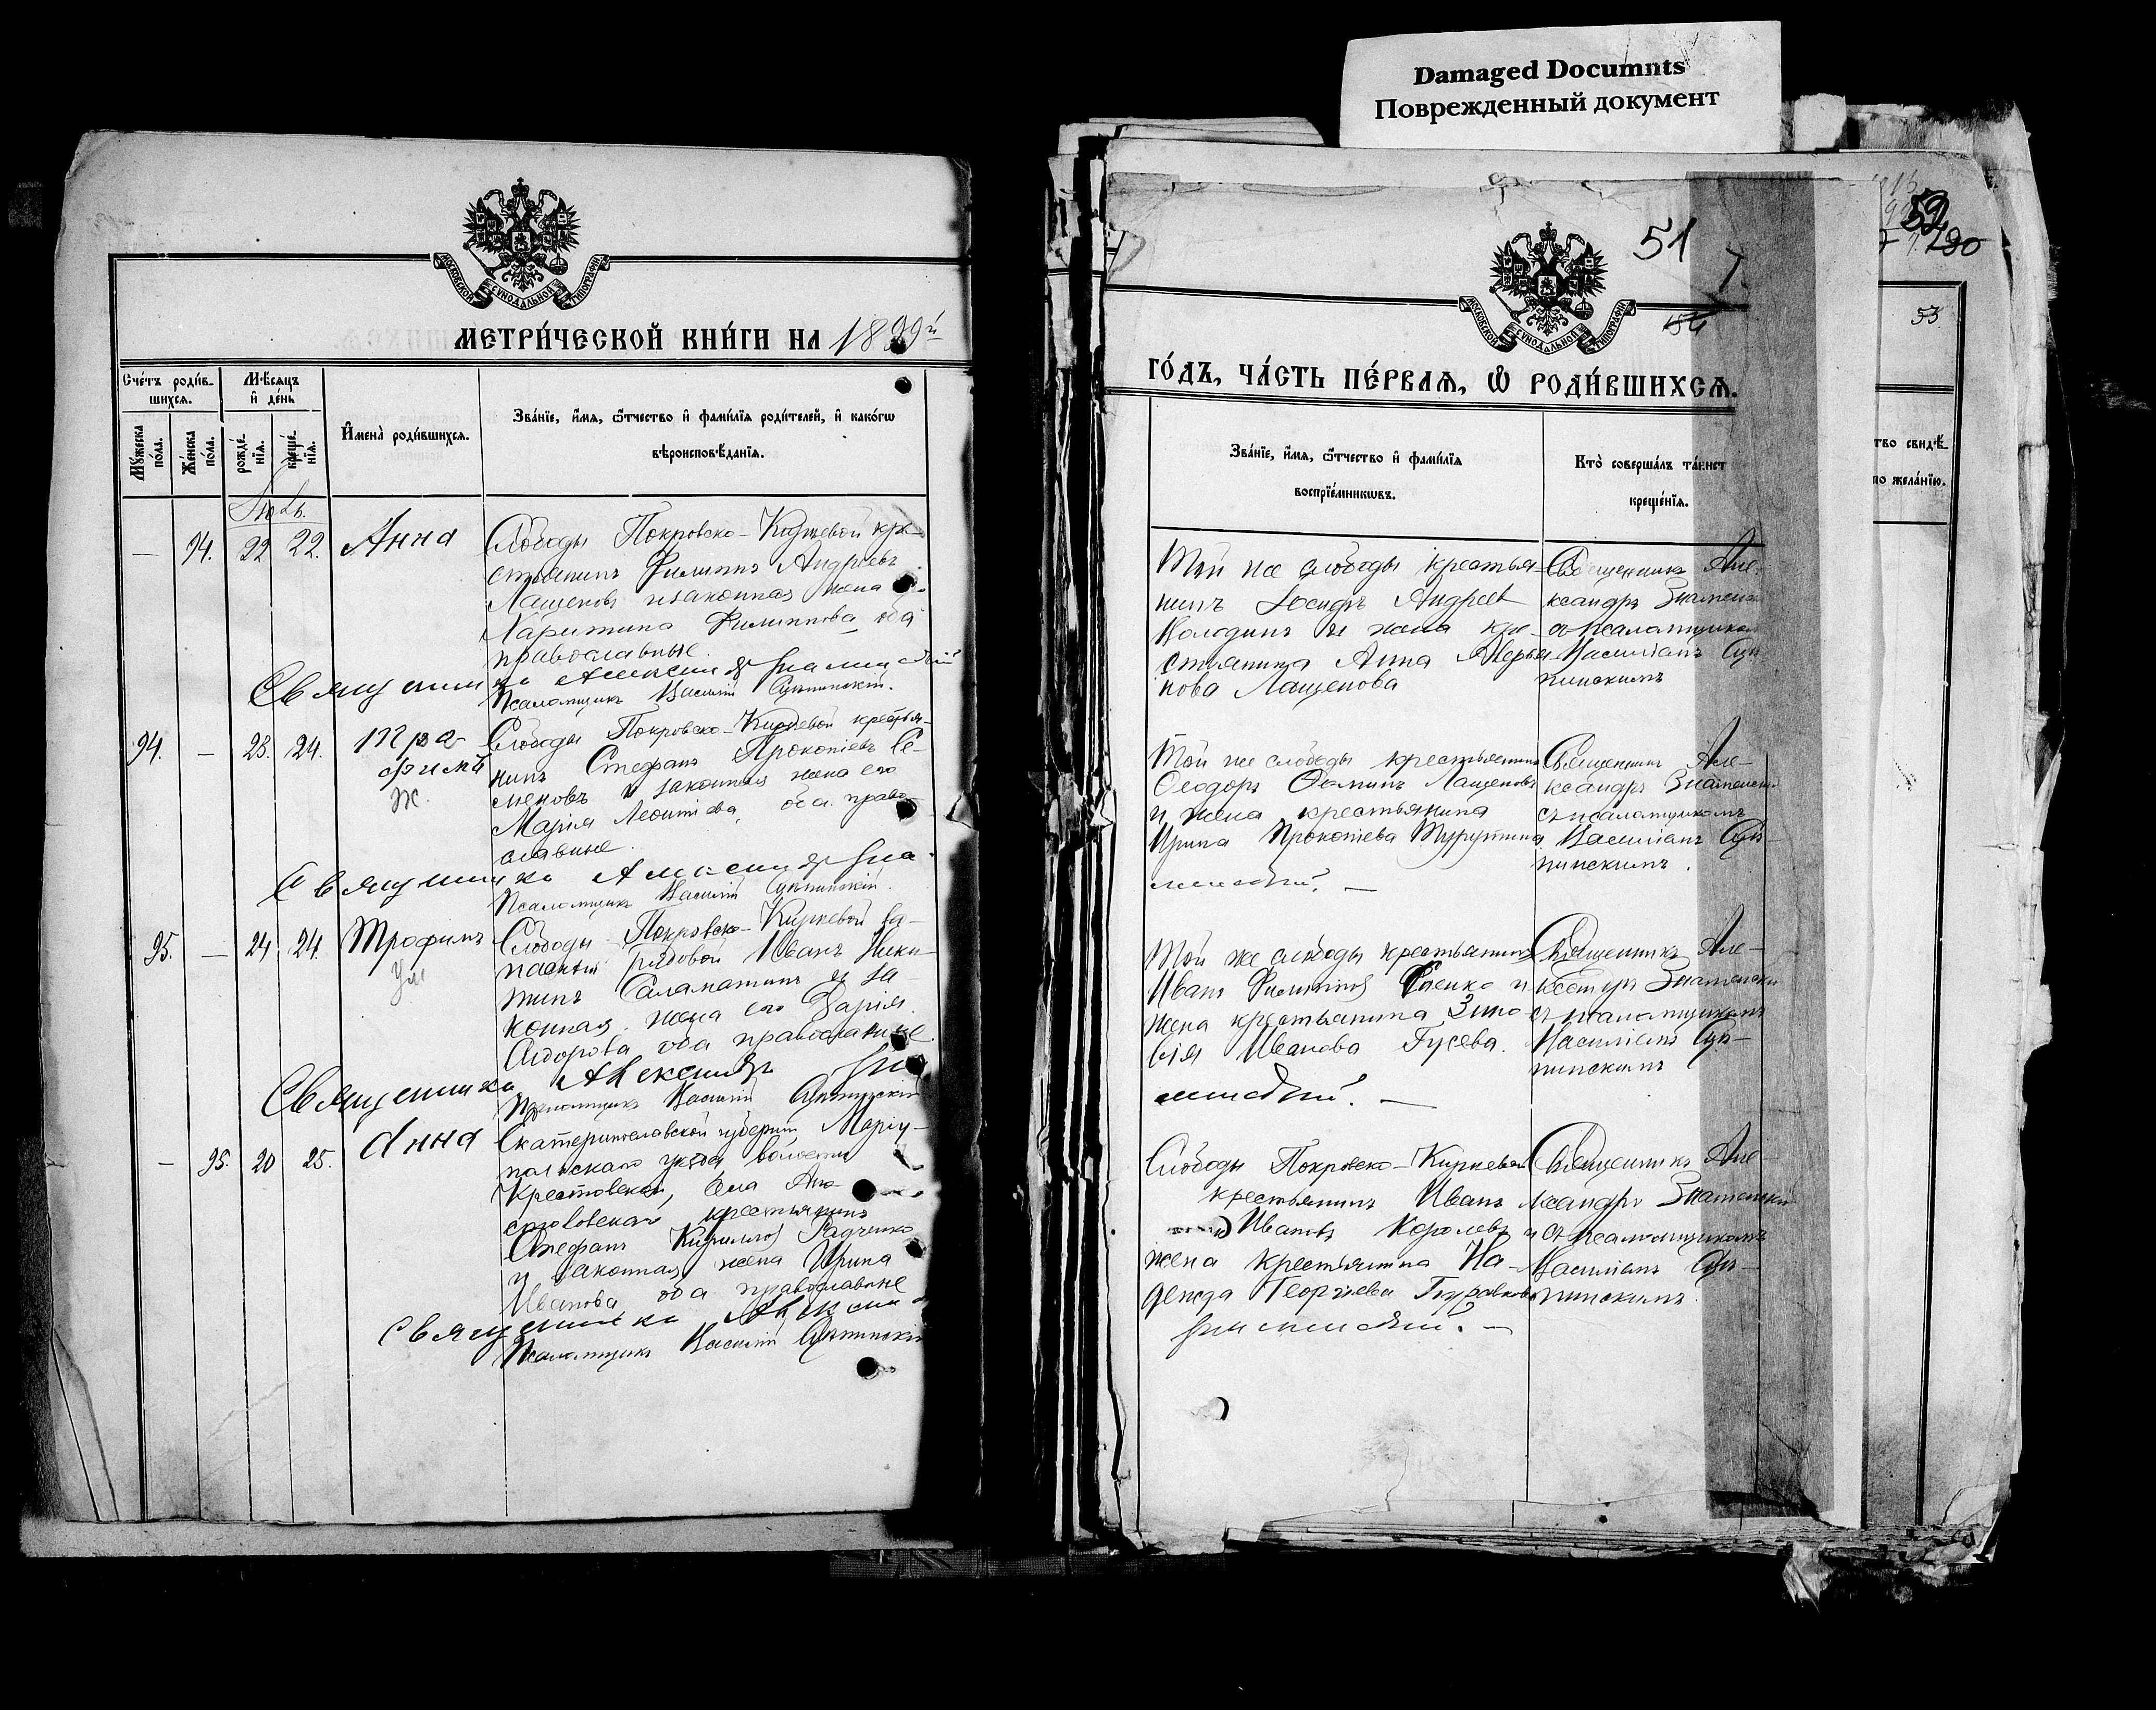 Damaged Documnts
Поврежденный документ
МОСКОВСКОЙ СѴНОДАЛЬНОЙ ТИПОГРАФІИ
МЕТРИ́ЧЕСКОЙ КНИ́ГИ НА 1899й
Сче́тъ роди́в-
шихся.
Мѣ́сяцъ
и҆ де́нь
Мꙋ́жеска
по́ла.
Же́нска
по́ла.
рожде́-
нїѧ.
креще́-
нїѧ.
И҆мена̀ роди́вшихсѧ.
Зва́нїе, и҆́мѧ, ѻ҆́тчество и҆ фами́лїѧ роди́телей, и҆ како́гѡ
вѣроисповѣ́данїѧ.
Іюль.
— 94. 22 22. Анна
Слободы Покровско-Киреевой кре-
стьянинъ Филиппъ Андреевъ
Лащеновъ и законная жена
Харитина Филиппова оба
православные.
Священникъ Александръ Знаменскій
Псаломщикъ Василій
94. — 23. 24. Тра-
фимъ
Ж.
Слободы Покровско-Киреевой крестья-
нинъ Стефанъ Прокопіевъ Се-
меновъ и законная жена его
Марія Леонтіева, оба право-
славные.
Священникъ Александръ Зна-
менскій. —
Псаломщикъ Василій
95. — 24 24. Трофимъ
Ум
Слободы Покровско-Киреевой За-
пасный Рядовой Иванъ Ники-
тинъ Саламатинъ и за
конная жена его Дарія
Сидорова оба православные.
Священникъ Александръ Зна
менскій. —
Псаломщикъ Василій
— 95. 20 25. Анна
Екатеринославской губерніи Маріу-
польскаго уѣзда волости
Крестовской, села
крестьянинъ
Стефанъ Кирилловъ Радченко
и законная жена Ирина
Иванова оба православные
Священникъ Александръ
Знаменскій. —
Псаломщикъ Василій
51
54
МОСКОВСКОЙ СѴНОДАЛЬНОЙ ТИПОГРАФІИ
ГО́ДЪ, ЧА́СТЬ ПЕ́РВАѦ, Ѡ҆ РОДИ́ВШИХСѦ.
Зва́нїе, и҆́мѧ, ѻ҆́тчество и҆ фами́лїѧ
воспрїе́мникѡвъ.
Кто̀ соверша́лъ та́инст
креще́нїѧ.
Той же слободы крестья-
нинъ Іосифъ Андреев
Колодинъ и жена кре-
стьянина Анна Аверья-
нова Лащенова
Священникъ Але-
ксандръ Знаменс
съ псаломщико
Василіемъ
Той же слободы крестьянинъ
Ѳеодоръ Ѳоминъ Лащеновъ
и жена крестьянина
Ирина Прокопіева
Священникъ Але-
ксандръ Знаменскій
съ псаломщикомъ
Василіемъ
Той же слободы крестьянинъ
Иванъ Филипповъ
жена крестьянина Зино-
вія Иванова Гусева.
Священникъ Але-
ксандръ Знаменскій
съ псаломщикомъ
Василіемъ
Слободы Покровско-Киреевой
крестьянинъ Иванъ
Ивановъ Королевъ и
жена крестьянина На-
дежда Георгіева
Священникъ Але-
ксандръ Знаменскій
съ псаломщикомъ
Василіемъ
52
190
53.
тво свидѣ́-
по жела́нїю.